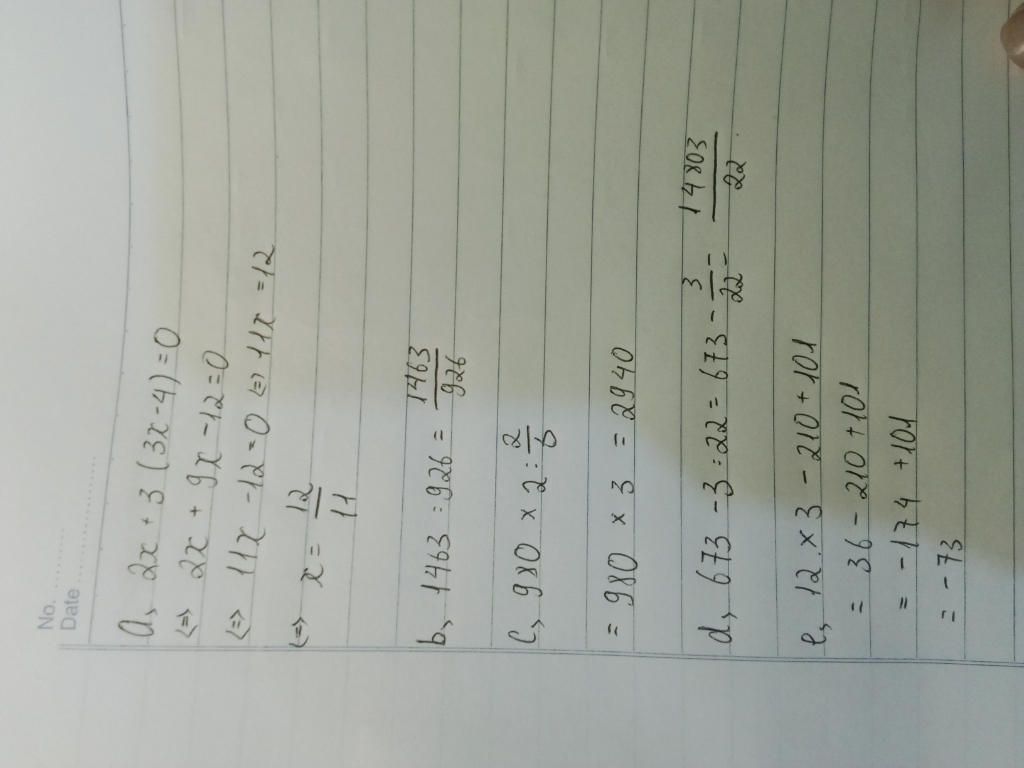 No. ....................
Date ....................
a, 2x + 3 (3x - 4) = 0
<=> 2x + 9x - 12 = 0
<=> 11x - 12 = 0 <=> 11x = 12
<=> x = 12/11
b, 1463 : 926 = 1463/926
c, 980 x 2 : 2/6
= 980 x 3 = 2940
d, 673 - 3 : 22 = 673 - 3/22 = 14803/22
e, 12 x 3 - 210 + 101
= 36 - 210 + 101
= -174 + 101
= -73